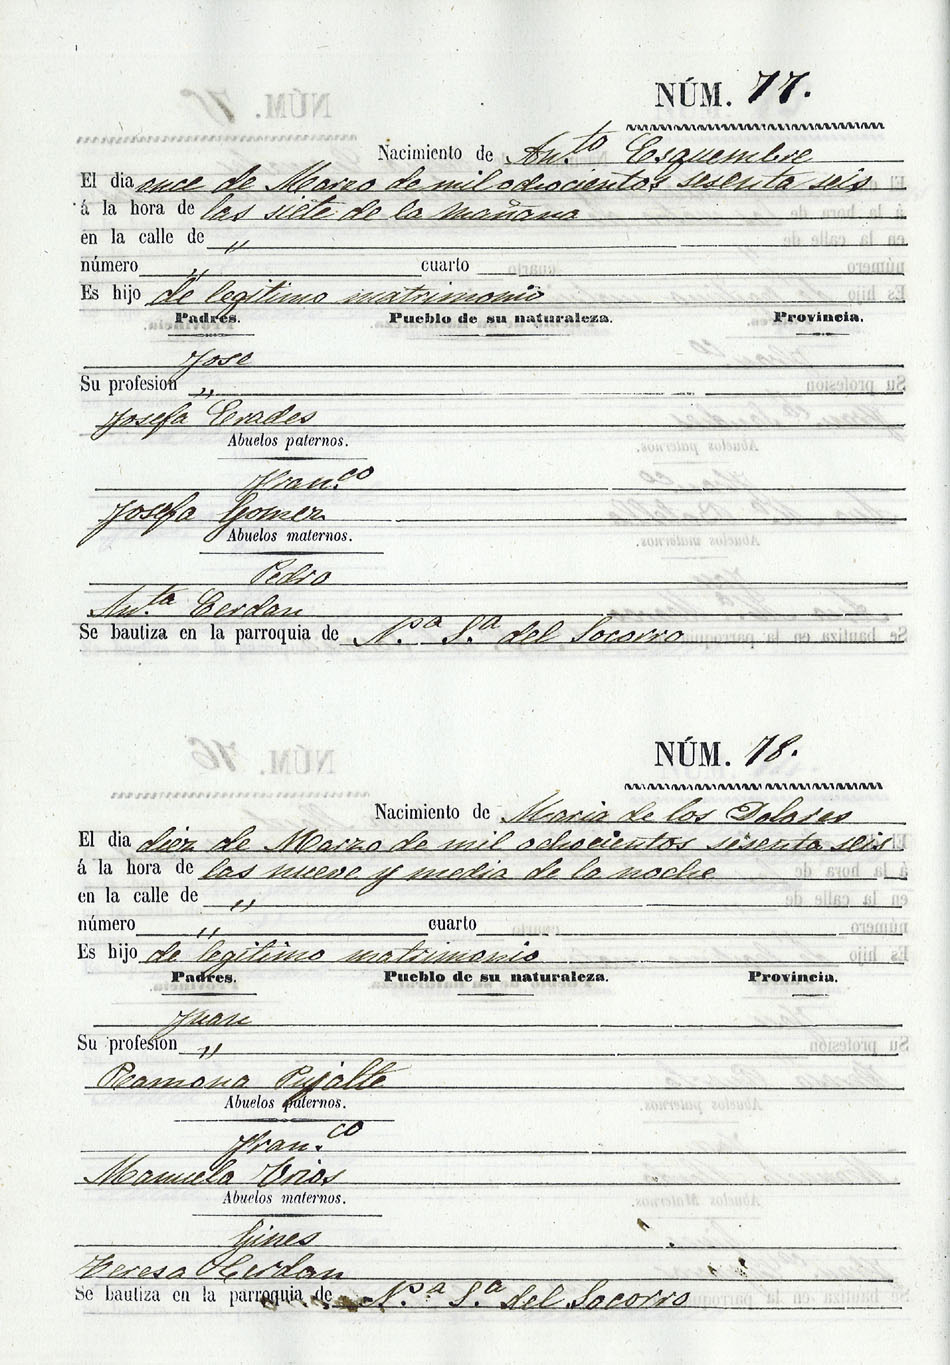 NÚM. 77.
Nacimiento de Ant.to Esquembre
El dia once de Marzo de mil ochocientos sesenta seis
á la hora de las siete de la mañana
en la calle de "
número " cuarto
Es hijo de legitimo matrimonio
Padres. Pueblo de su naturaleza. Provincia.
Jose
Su profesion "
Josefa Erades
Abuelos paternos.
Fran.co
Josefa Gomez
Abuelos maternos.
Pedro
Ant.ta Cerdan
Se bautiza en la parroquia de N.ª S.ª del Socorro
NÚM. 78.
Nacimiento de Maria de los Dolores
El dia diez de Marzo de mil ochocientos sesenta seis
á la hora de las nueve y media de la noche
en la calle de "
número " cuarto
Es hijo de legitimo matrimonio
Padres. Pueblo de su naturaleza. Provincia.
Juan
Su profesion "
Ramona Pujalte
Abuelos paternos.
Fran.co
Manuela
Abuelos maternos.
Gines
Teresa Cerdan
Se bautiza en la parroquia de N.ª S.ª del Socorro